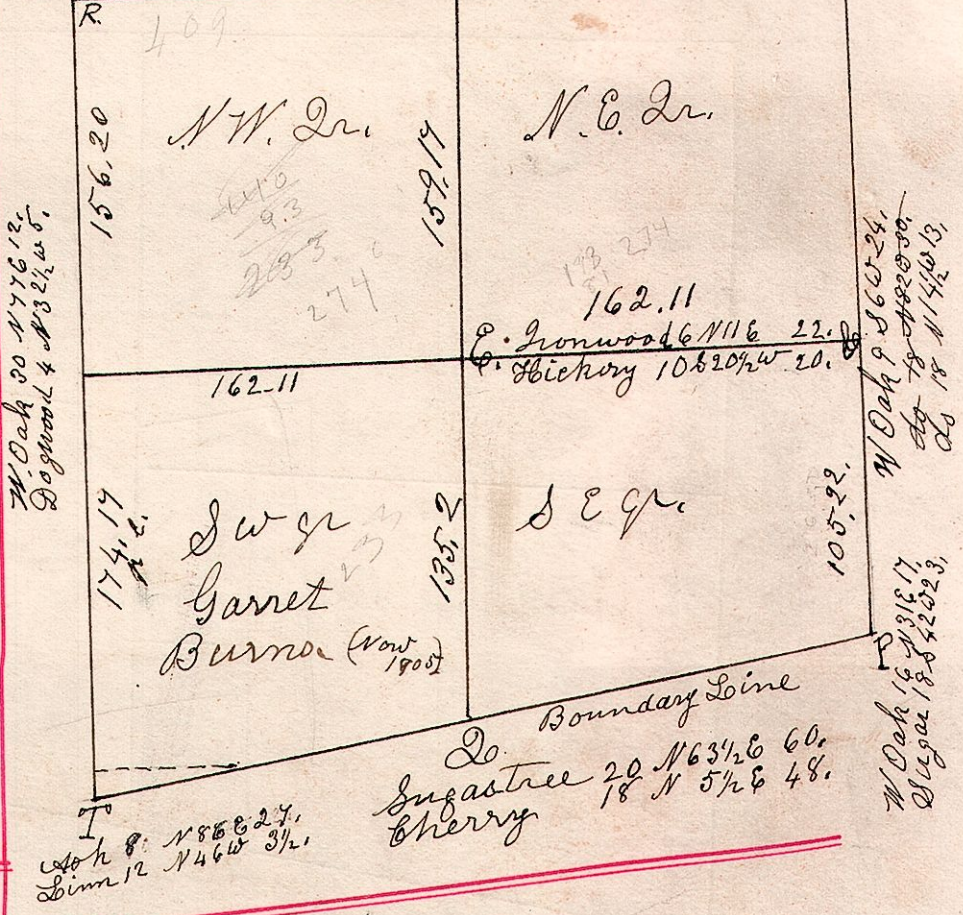 R.
409
N.W. Qr.
N.E. Qr.
156.20
159.17
140
9.3
233
274
193 274
162.11
E. Ironwood 6 N11E 22.
Hickory 10 S20½W 20.
162.11
W. Oak 30 N77E 12.
Dogwood 4 N32½W 5.
W Oak 9 S6W 24.
do 18 N82W30.
do 18 N14½W13.
S W qr
Garret
Burns (Now
1905)
S E qr.
174.17
135.2
105.22.
23
P
W Oak 16 N31E17.
Sugar 18 S42W23.
Boundary Line
Q
Sugartree 20 N63½E 60.
Cherry 18 N 5½E 48.
T
Ash 8. N86E27.
Linn 12 N46W 3½.